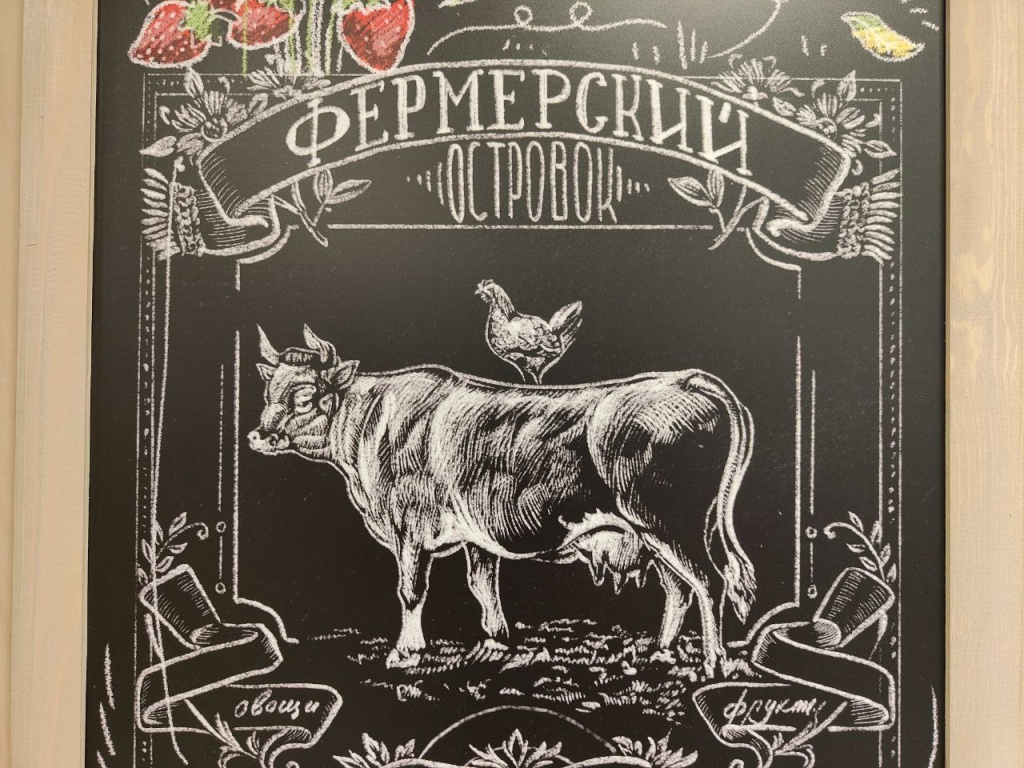 ФЕРМЕРСКИЙ
ОСТРОВОК
овощи
фрукты